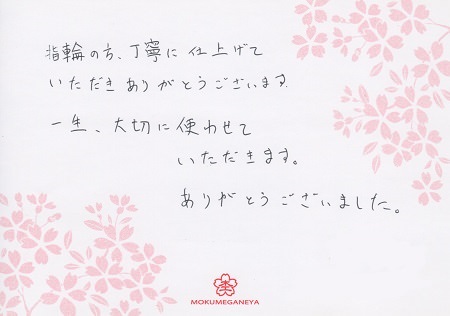 指輪の方、丁寧に仕上げて
いただきありがとうございます
一生、大切に使わせて
いただきます。
ありがとうございました。
MOKUMEGANEYA